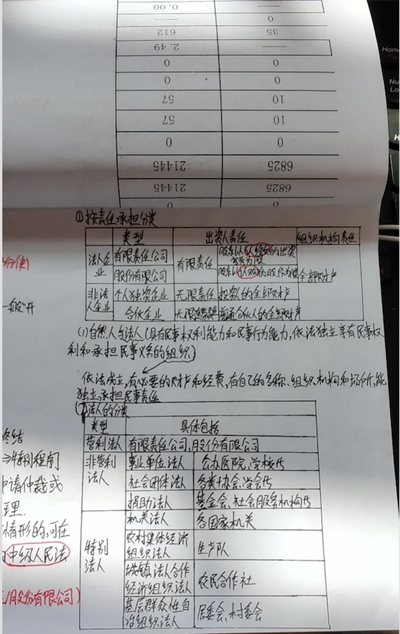 0.00
612
35
2.49
0
0
57
10
57
10
0
0
21445
6825
21445
6825
0
0
①按责任承担分类
类型 出资人责任 组织机构责任
法人企业 有限责任公司 有限责任
股份有限公司 全部财产
非法人企业 个人独资企业 无限责任 投资人的全部财产
合伙企业 普通合伙人的全部财产
(1)自然人与法人(具有民事权利能力和民事行为能力,依法独立享有民事权
利和承担民事义务的组织)
依法成立,有必要的财产和经费,有自己的名称、组织机构和场所,能
独立承担民事责任
法人的分类
类型 具体包括
营利法人 有限责任公司、股份有限公司
非营利法人 事业单位法人 公办医院,学校等
社会团体法人 各类协会,学会等
捐助法人 基金会,社会服务机构等
特别法人 机关法人 各国家机关
农村集体经济组织法人 生产队
城镇农村合作经济组织法人 农民合作社
基层群众性自治组织法人 居委会,村委会
终结
申请仲裁或
情形的,可在
中级人民法
股份有限公司)